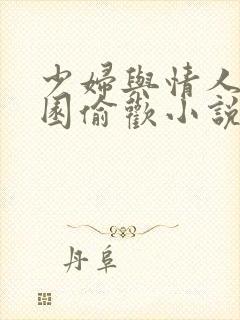 少婦與情人
囷偷歡小說
丹阜